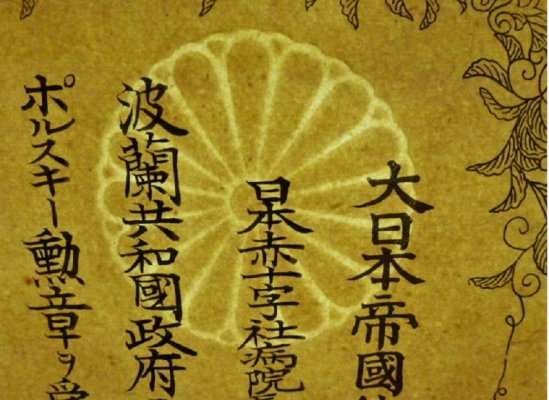 大日本帝國
日本赤十字社病院
波蘭共和國政府
ポルスキー勳章ヲ受